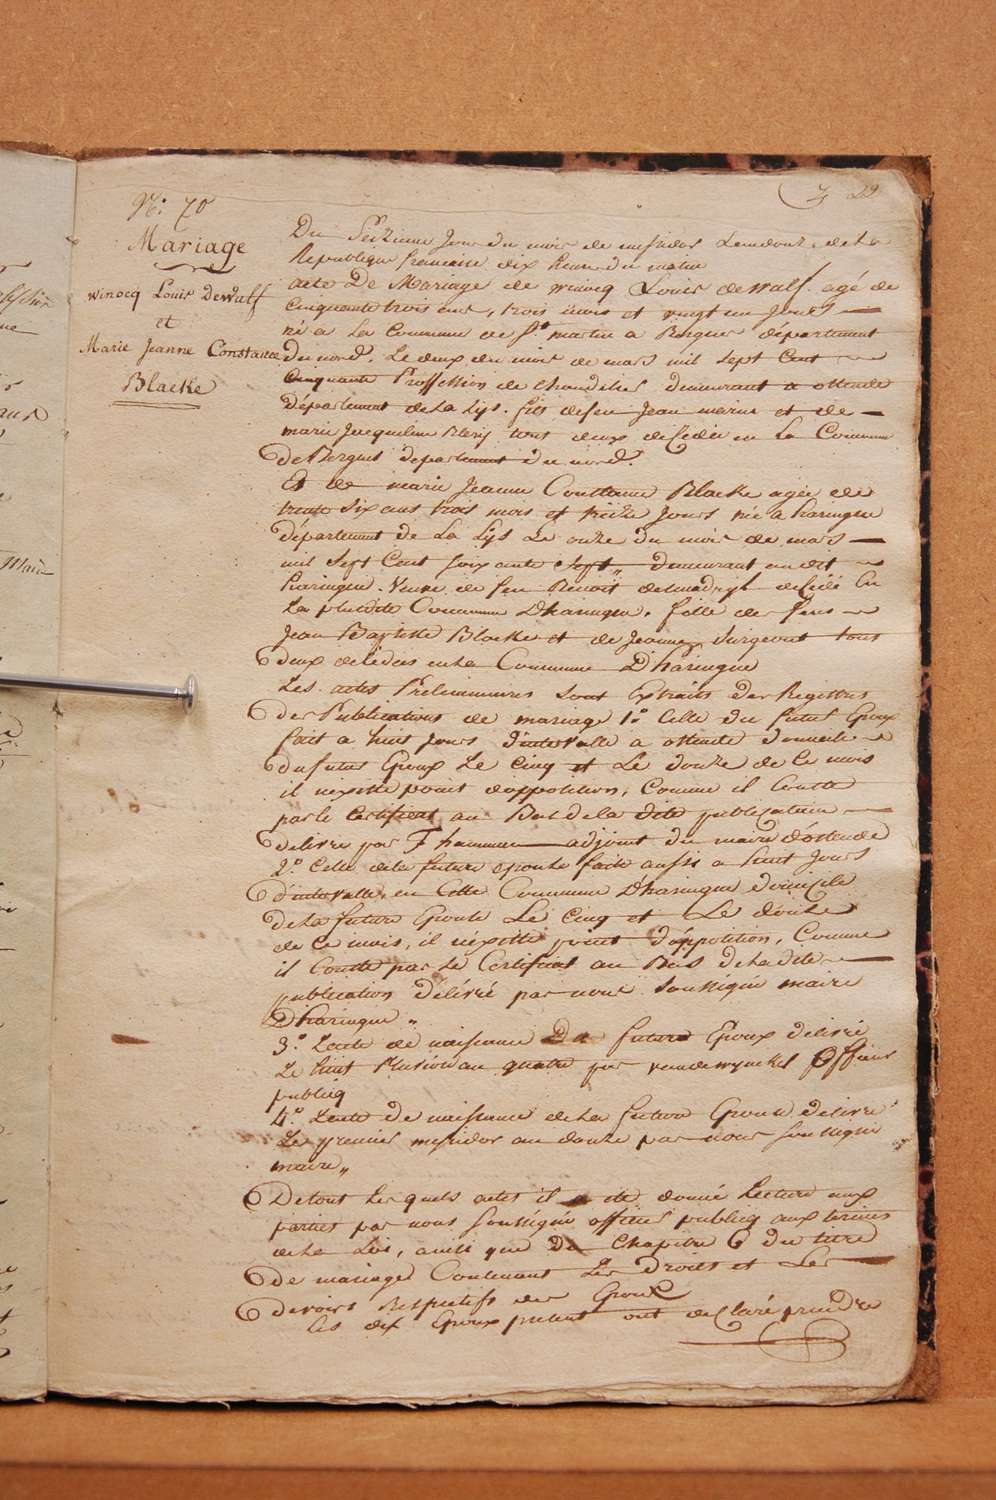 N.º 70
Mariage
Winocq Louis Dewulf
et
Marie Jeanne Constance
Blaeke
22
Du Seizieme Jour du mois de messidor L'an douze de La
Republique francaise dix heure du matin
acte De Mariage de winocq Louis dewulf. agé de
cinquante trois ans, trois mois et vingt un Jours —
né a La Commune de St. martin a Bergues département
du nord. Le deux du mois de mars mil sept Cent
Cinquante Proffession de Chandelier demeurant a ostende
Département de La Lys. fils de feu Jean marin et de —
marie Jacqueline Blery tout deux décedée en La Commune
de Bergues departement du nord.
Et de marie Jeanne Constance Blaeke agée de
trente Six ans trois mois et treize Jours née a haringue
département de La Lys Le onze du mois de mars —
mil Sept Cent Soixante Sept„ demeurant au dit
haringue. Veuve de feu Benoit décédé en
La plusdite Commune D'haringue, fille de feus
Jean Baptiste Blaeke et de Jeanne Surgeont tous
deux décédés en La Commune D'haringue
Les actes Préliminaires Sont Extraits des Registres
des Publications de mariage 1.º Celle du futur Epoux
fait a huit Jours d'intervalle a ostende domicile
du futur Epoux Le Cinq et Le douze de Ce mois
il n'existe point d'oppotition, Comme il Conste
par le Certificat au Bas de La dite publication —
délivré par F hamman adjoint du maire d'ostende
2.º Celle de la future epouse faite aussi a huit Jours
d'intervalle, en Cette Commune D'haringue domicile
de La future Epouse Le Cinq et Le douze
de Ce mois, il n'éxiste point d'oppotition, Comme
il Conste par Le Certificat au Bas de La dite —
publication délivré par nous Soussigné maire
D'haringue„
3.º L'acte de naissance Du futur Epoux délivré
Le huit Pluviose an quatre par vandewynckel Officier
publicq
4.º L'acte de naissance de La future Epouse délivré
Le premier messidor an douze par nous Soussigné
maire„
De tout Les quels actes il a été donné Lecture aux
parties par nous Soussigné officier publicq aux termes
de La Loi, ainsi que Du Chapitre 6 du titre
de mariage Contenant Les Droits et Les —
devoirs Respectifs des Epoux
Les dit Epoux présent ont declaré prendre